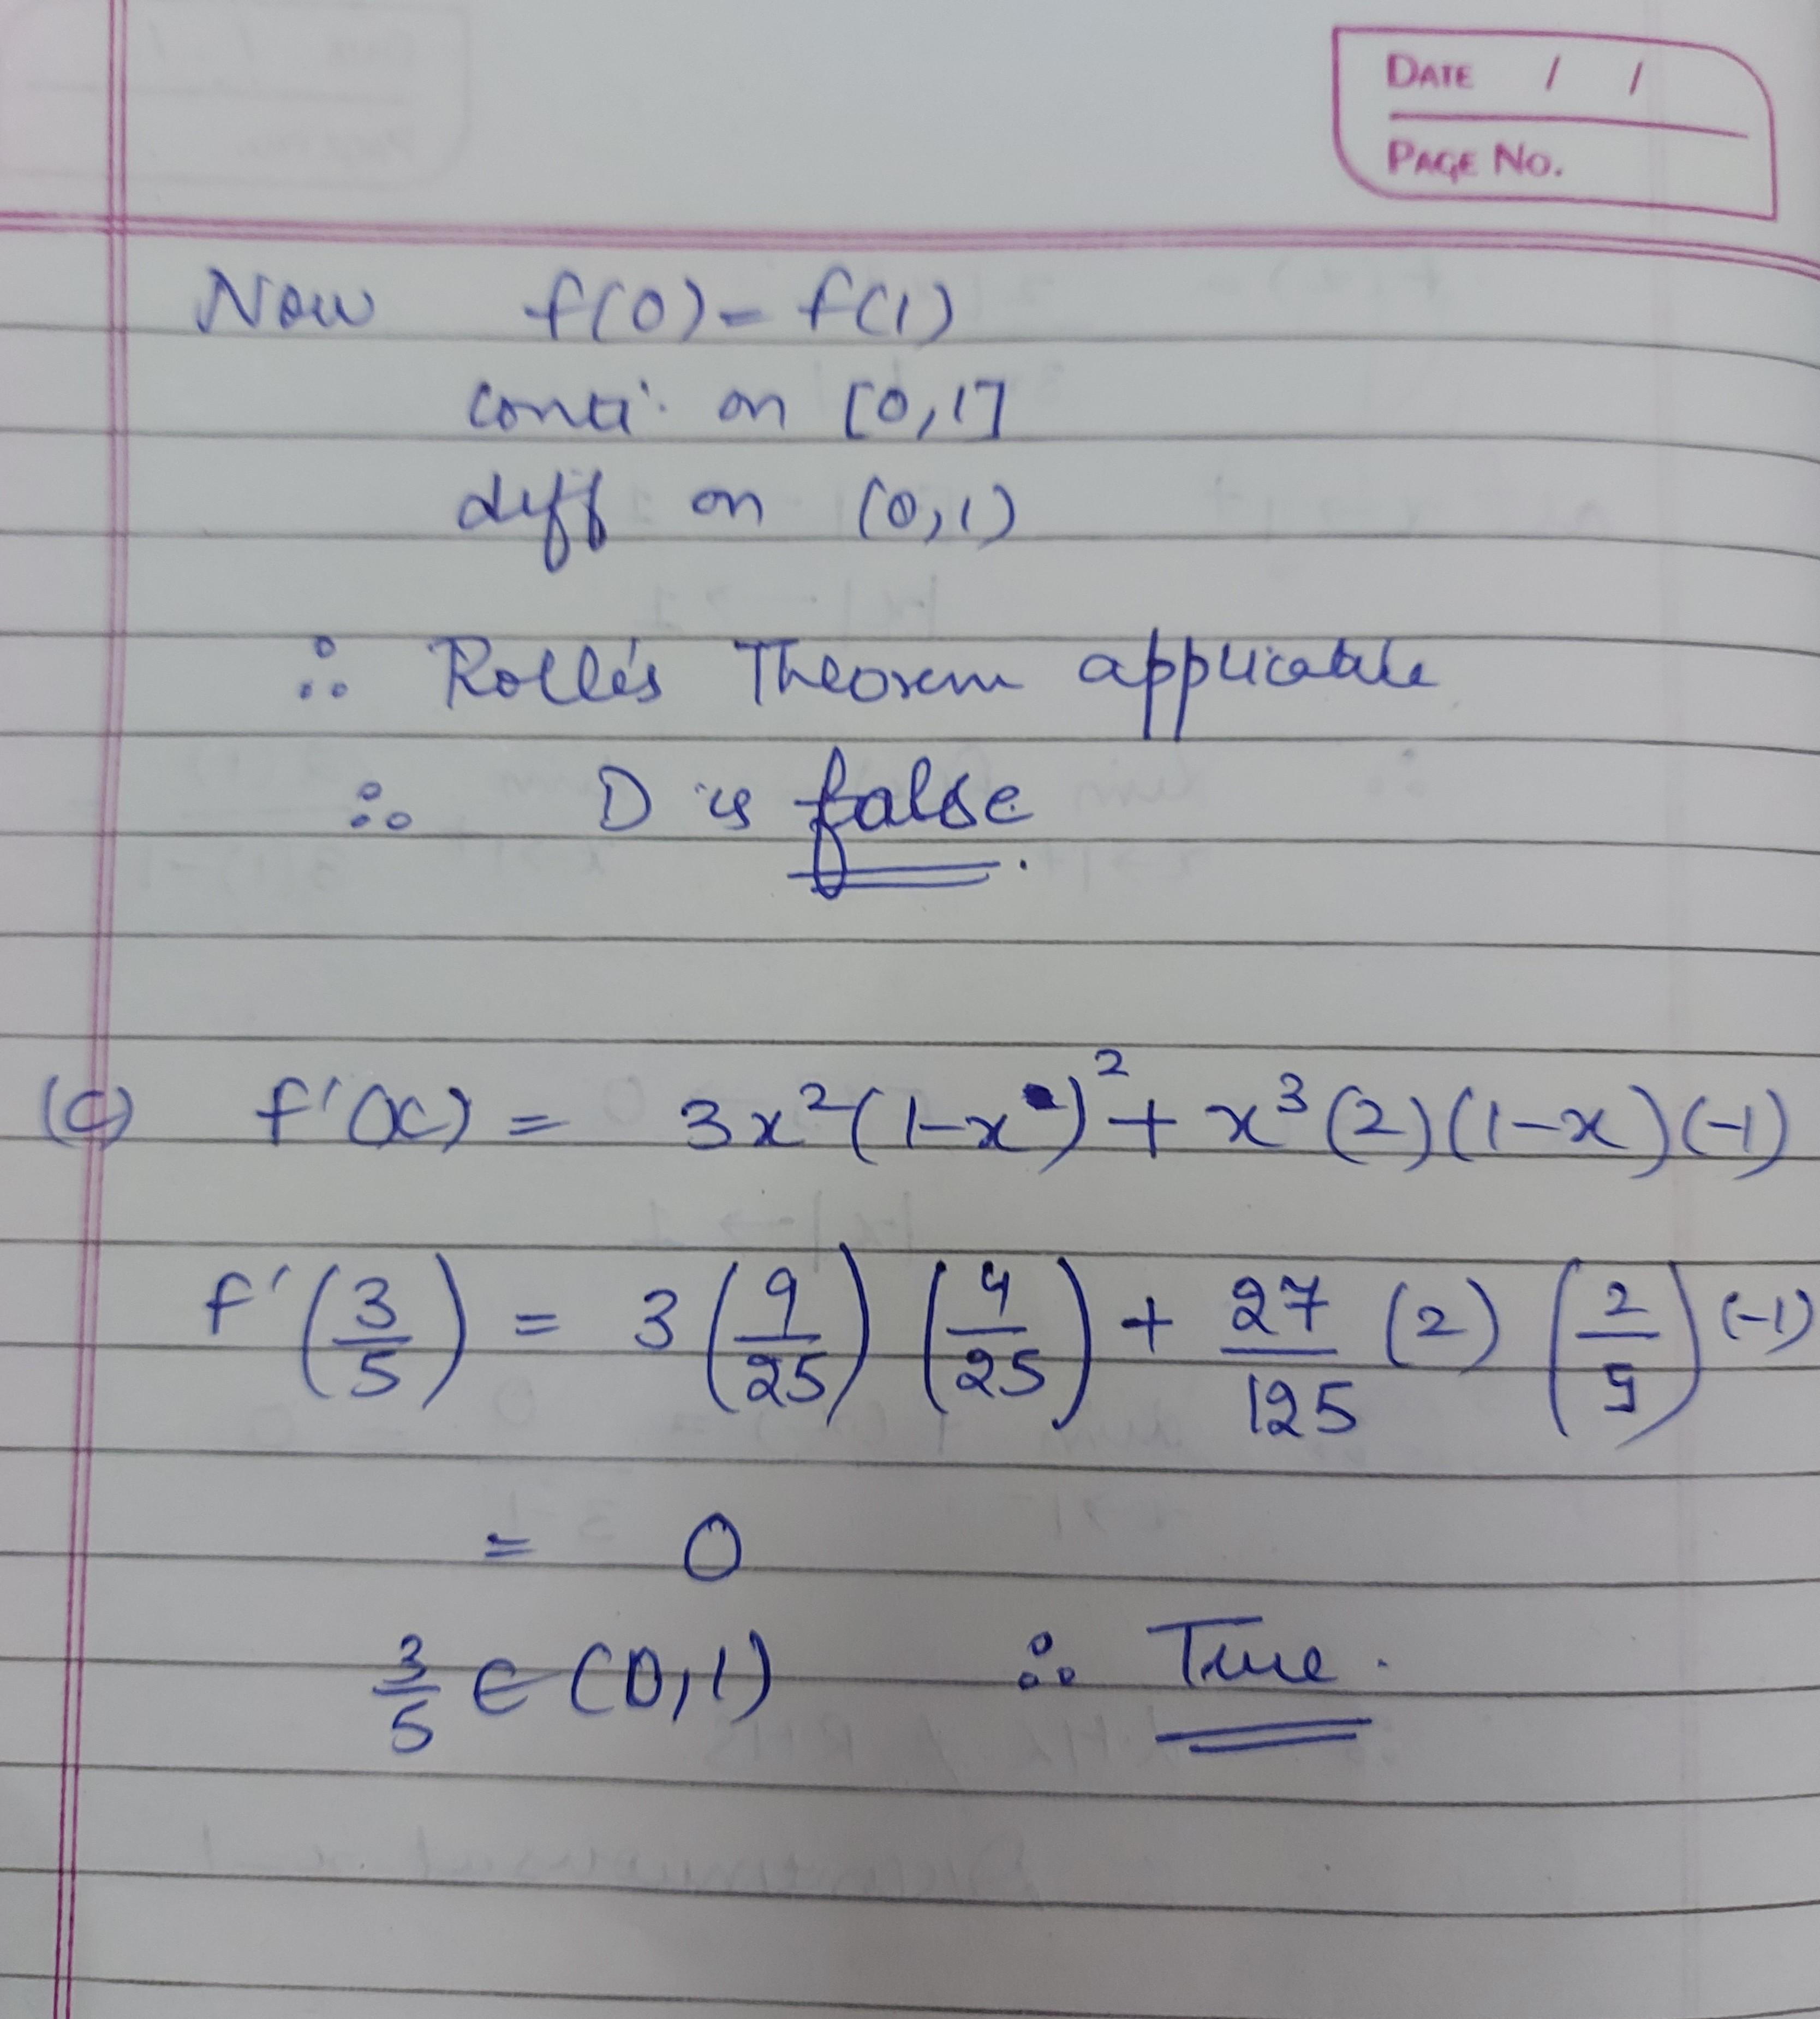 DATE / /
PAGE NO.
Now f(0) = f(1)
conti. on [0,1]
diff on (0,1)
∴ Rolle's Theorem applicable
∴ D is false.
(C) f'(x) = 3x²(1-x)² + x³(2)(1-x)(-1)
f'(3/5) = 3(9/25)(4/25) + 27/125 (2)(2/5)(-1)
= 0
3/5 ∈ (0,1) ∴ True.